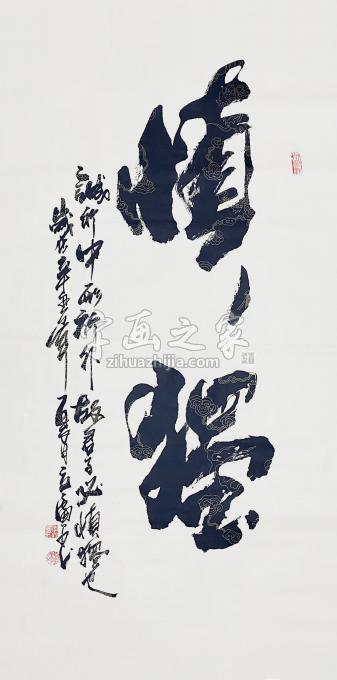 慎獨
誠於中形於外故君子必慎獨也
歲在辛丑年夏月
字画之家
zihuazhijia.com